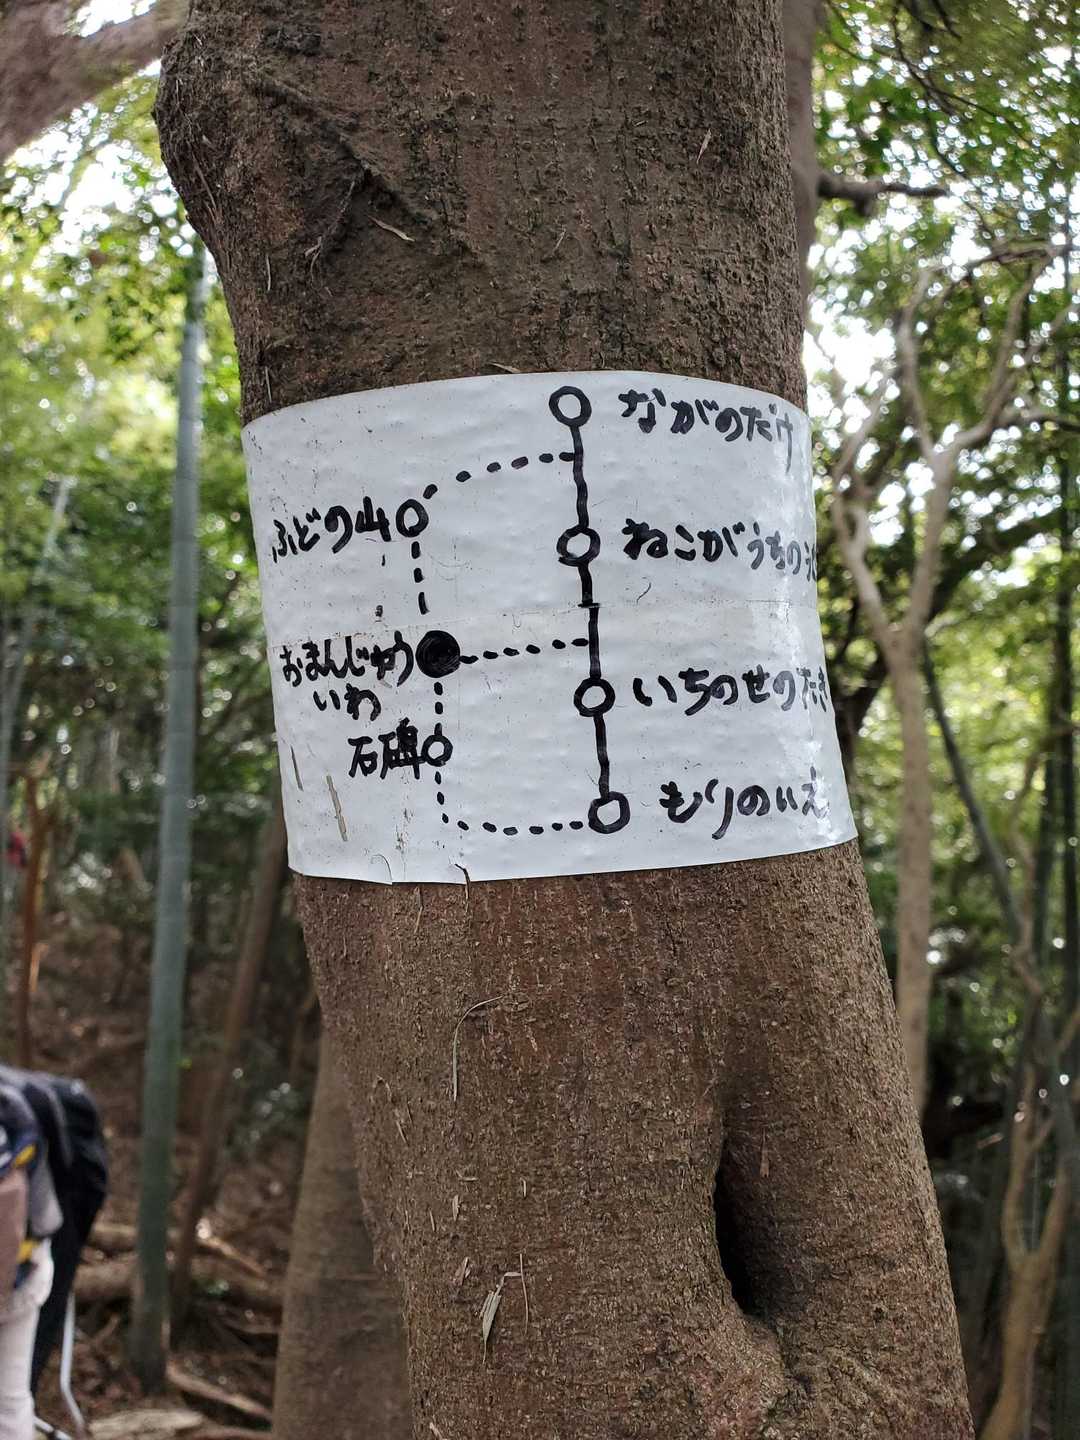 ながのだけ
ふどの山
ねこがうちの
おまんじゅう
いわ
いちのせのたき
石碑
もりのいえ